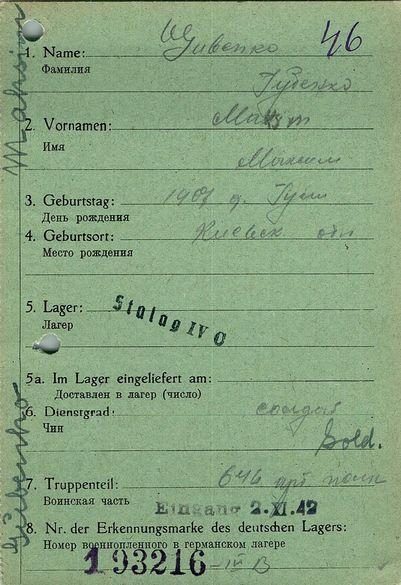 46
1. Name:
Фамилия
Губенко
2. Vornamen:
Имя
3. Geburtstag:
День рождения
4. Geburtsort:
Место рождения
Киевск. обл
5. Lager: Stalag IV
Лагер
5a. Im Lager eingeliefert am:
Доставлен в лагер (число)
6. Dienstgrad: солдат
Чин
Sold.
7. Truppenteil: 646 арт полк
Воинская часть
Eingang 2. XI. 42
8. Nr. der Erkennungsmarke des deutschen Lagers:
Номер военнопленного в германском лагере
193216
Gubenko
Maksim